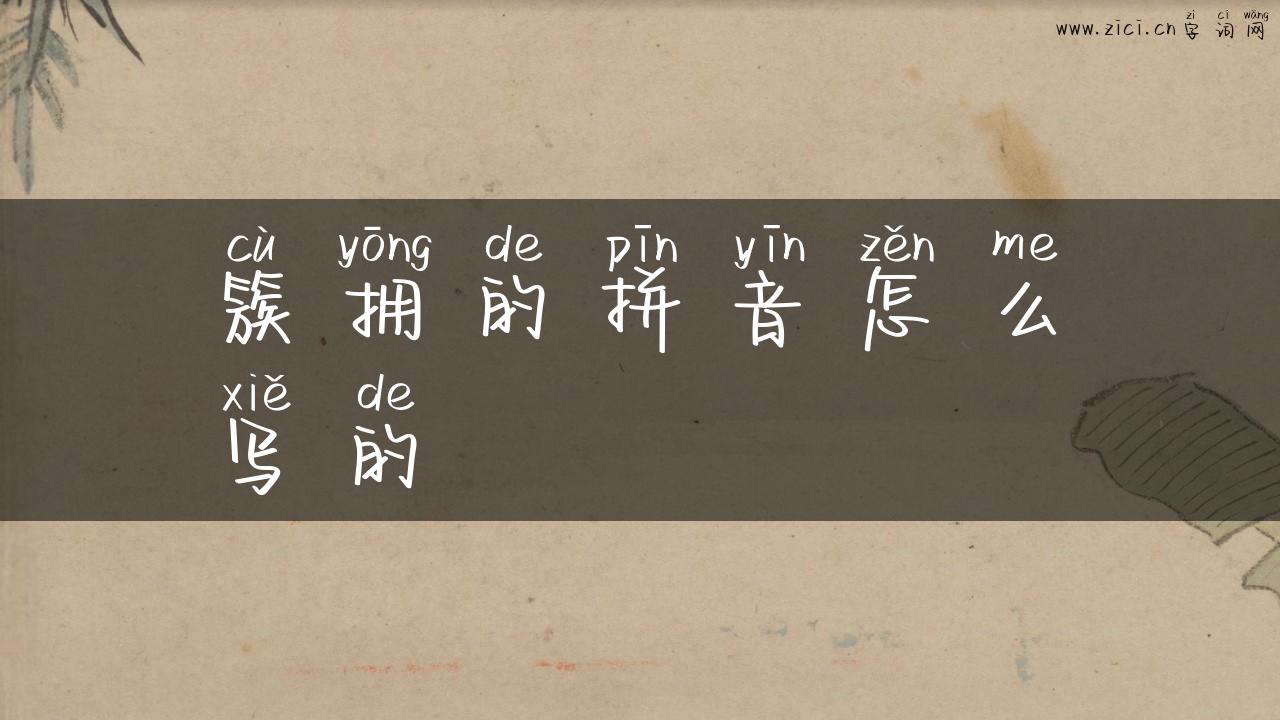 zì cí wǎng
www.zici.cn 字 词 网
cù yōng de pīn yīn zěn me
簇 拥 的 拼 音 怎 么
xiě de
写 的